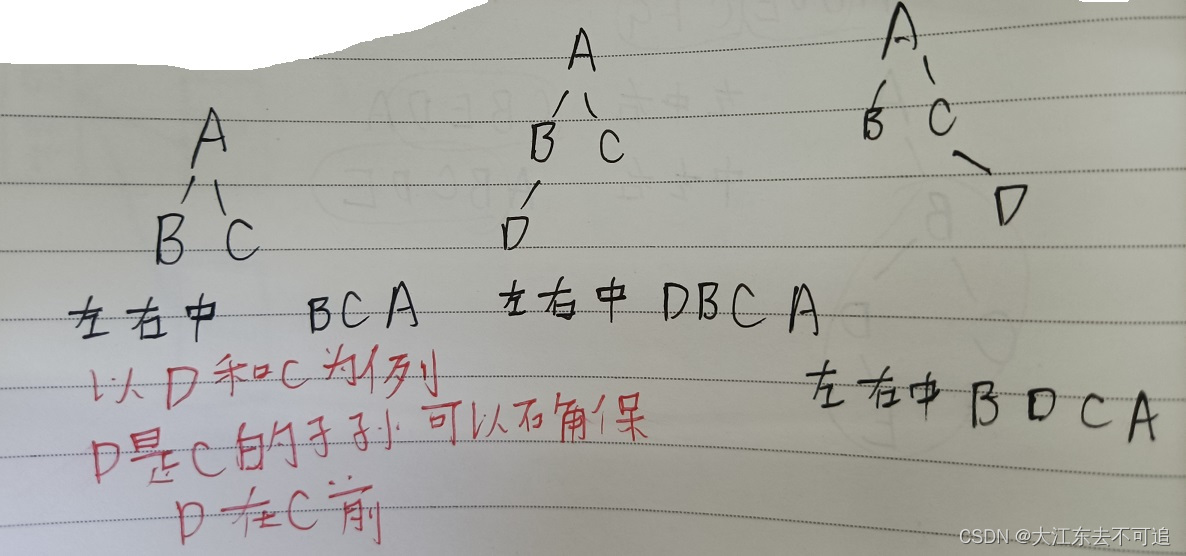 A
B C
A
B C
D
A
B C
D
左右中 BCA
左右中 DBCA
左右中 BDCA
以D和C为例
D是C的子孙可以确保
D在C前
CSDN @大江东去不可追